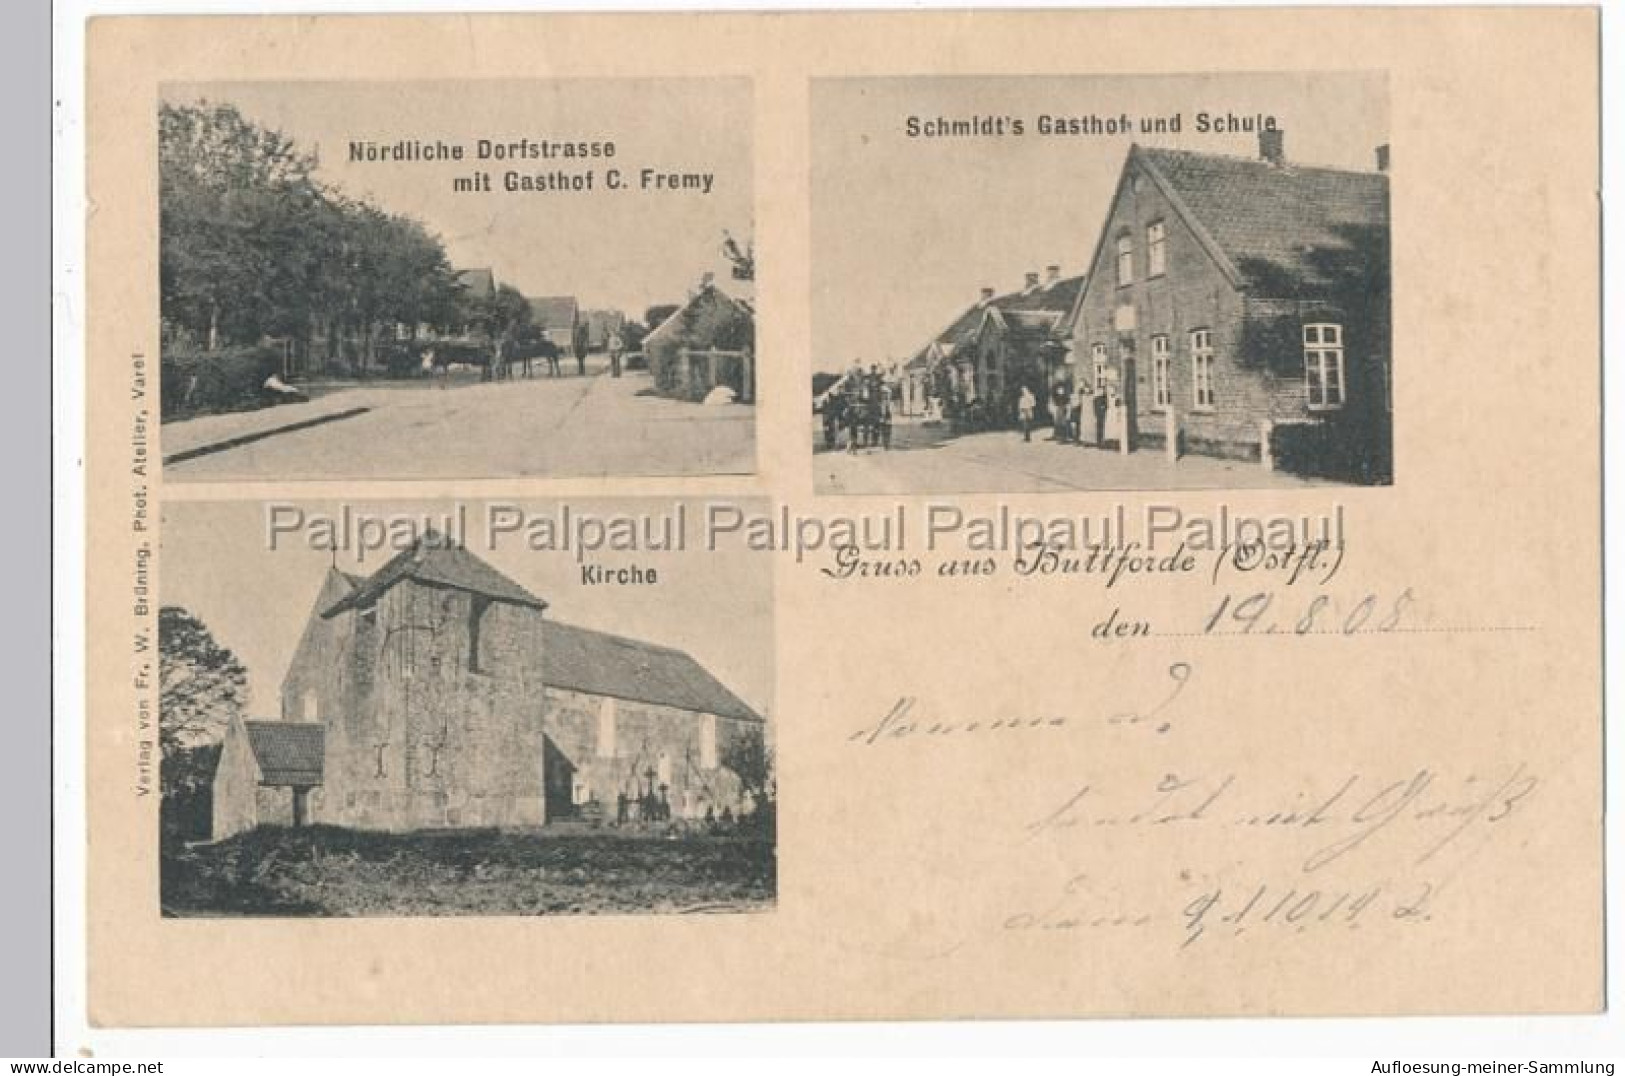 Nördliche Dorfstrasse
mit Gasthof C. Fremy
Schmidt's Gasthof und Schule
Verlag von Fr. W. Brüning, Phot. Atelier, Varel
Palpaul Palpaul Palpaul Palpaul Palpaul
Kirche
Gruss aus Buttforde (Ostfl.)
den 19.8 08
sendet mit Gruß
delcampe.net
Aufloesung-meiner-Sammlung